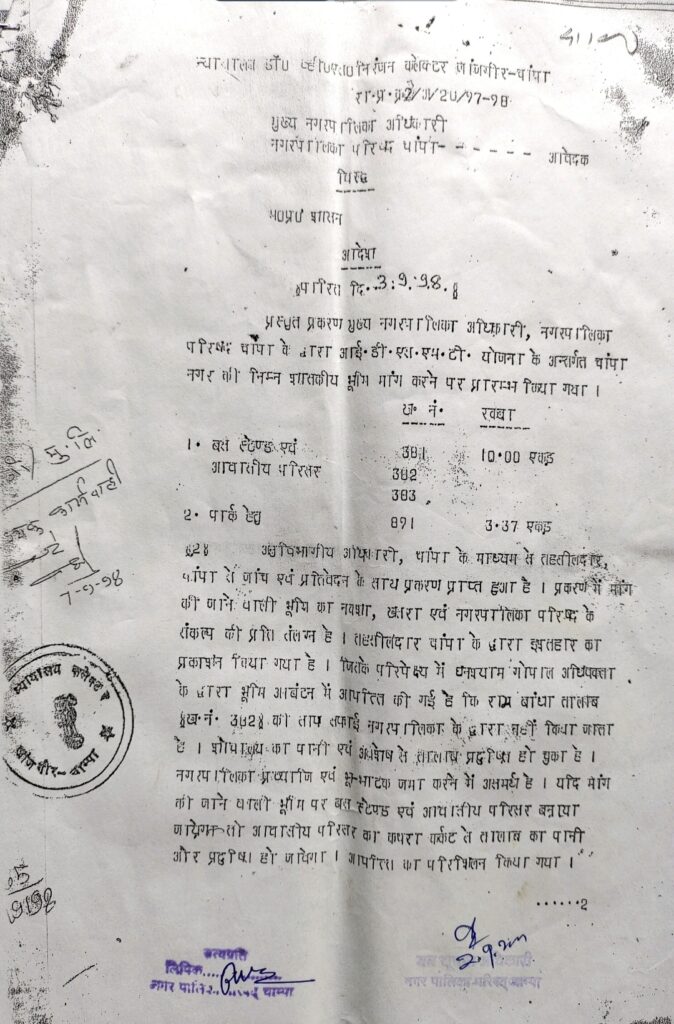 न्यायालय डॉ० व्ही०एस०निरंजन कलेक्टर जांजगीर-चांपा
रा.प्र.क्र.2/अ/20/97-98
मुख्य नगरपालिका अधिकारी
नगरपालिका परिषद चांपा- - - - - - आवेदक
विरूद्ध
म०प्र० शासन
आदेश
पारित दि. 3.9.98.
प्रस्तुत प्रकरण मुख्य नगरपालिका अधिकारी, नगरपालिका
परिषद चांपा के द्वारा आई.डी.एस.एम.टी. योजना के अन्तर्गत चांपा
नगर की निम्न शासकीय भूमि मांग करने पर प्रारम्भ किया गया ।
ख. नं. रकबा
1. बस स्टेण्ड एवं 381 10.00 एकड़
आवासीय परिसर 382
383
2. पार्क हेतु 891 3.37 एकड़
§2§ अनुविभागीय अधिकारी, चांपा के माध्यम से तहसीलदार,
चांपा से जांच एवं प्रतिवेदन के साथ प्रकरण प्राप्त हुआ है । प्रकरण में मांग
की जाने वाली भूमि का नक्शा, खसरा एवं नगरपालिका परिषद के
संकल्प की प्रति संलग्न है । तहसीलदार चांपा के द्वारा इश्तहार का
प्रकाशन किया गया है । जिसके परिपेक्ष्य में घनश्याम गोपाल अधिवक्ता
के द्वारा भूमि आबंटन में आपत्ति की गई है कि राम बांधा तालाब
§ख.नं. 362§ की साफ सफाई नगरपालिका के द्वारा नहीं किया जाता
है । शौचालय का पानी एवं अवशेष से तालाब प्रदूषित हो चुका है ।
नगरपालिका प्रव्याजि एवं भू-भाटक जमा करने में असमर्थ है । यदि मांग
की जाने वाली भूमि पर बस स्टेण्ड एवं आवासीय परिसर बनाया
जायेगा तो आवासीय परिसर का कचरा कर्कट से तालाब का पानी
और प्रदूषित हो जायेगा । आपत्ति का परिशिलन किया गया ।
......2
मु. लि
कार्यवाही
7-9-98
न्यायालय कलेक्टर
जांजगीर-चाम्पा
सत्यप्रति
लिपिक....
नगर पालिका परिषद चाम्पा
नगर पालिका परिषद चाम्पा